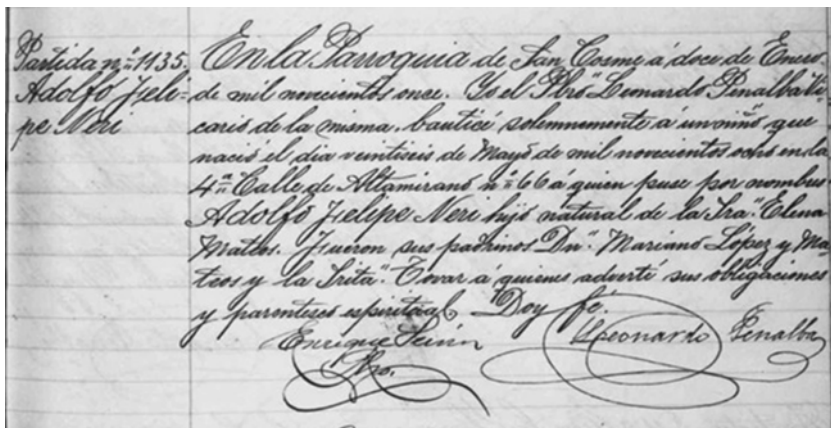 Partida nº 1135.
Adolfo Feli=
pe Neri
En la Parroquia de San Cosme á doce de Enero
de mil novecientos once. Yo el Pbrō Leonardo Penalba Vi-
cario de la misma, bauticé solemnemente á un niño que
nació el dia veintiseis de Mayo de mil novecientos ocho en la
4ª Calle de Altamirano nº 66 á quien puse por nombre
Adolfo Felipe Neri hijo natural de la Sra. Elena
Mateos. Fueron sus padrinos Dn. Mariano López y Ma-
teos y la Srita. Tovar á quienes advertí sus obligaciones
y parentesco espiritual. Doy fé.
Enrique Leonardo Penalba
Pbo.